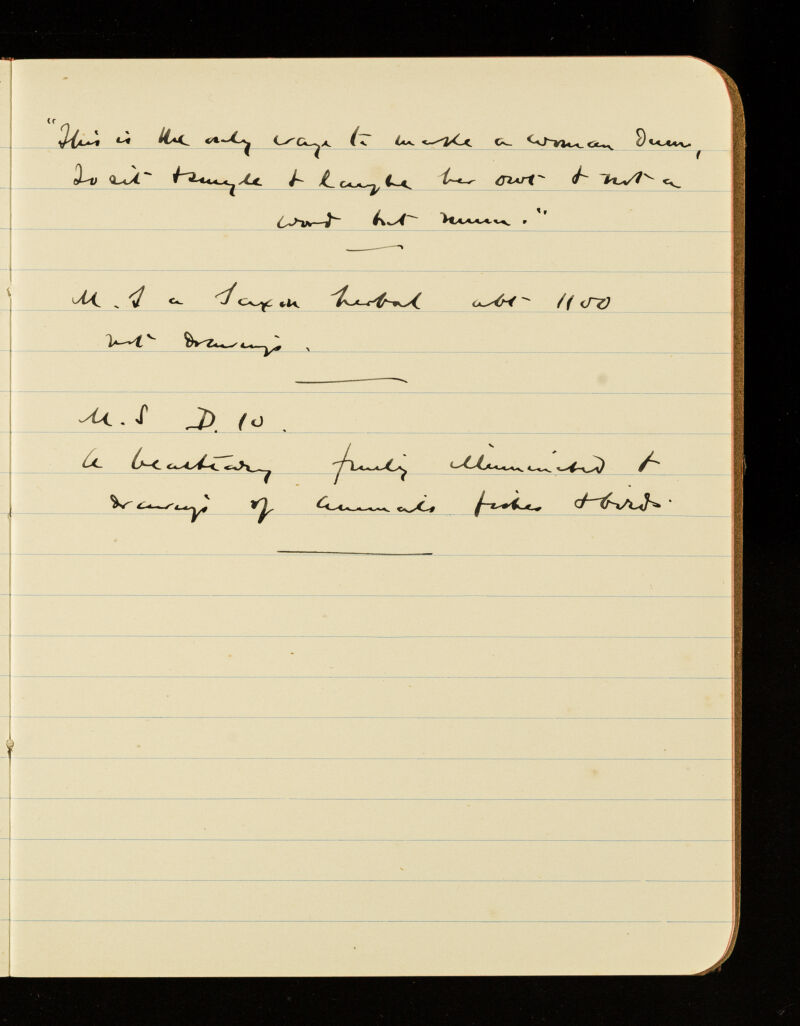 "This is the only waye to make a woman dum,
To sit & smyle & laughe her owt & not a
word but mum."
M.S a Saxon herbal abt 1100
not drawings.
M.S D. 10.
A beastiary finely illuminated &
drawings of animals fishes & birds.